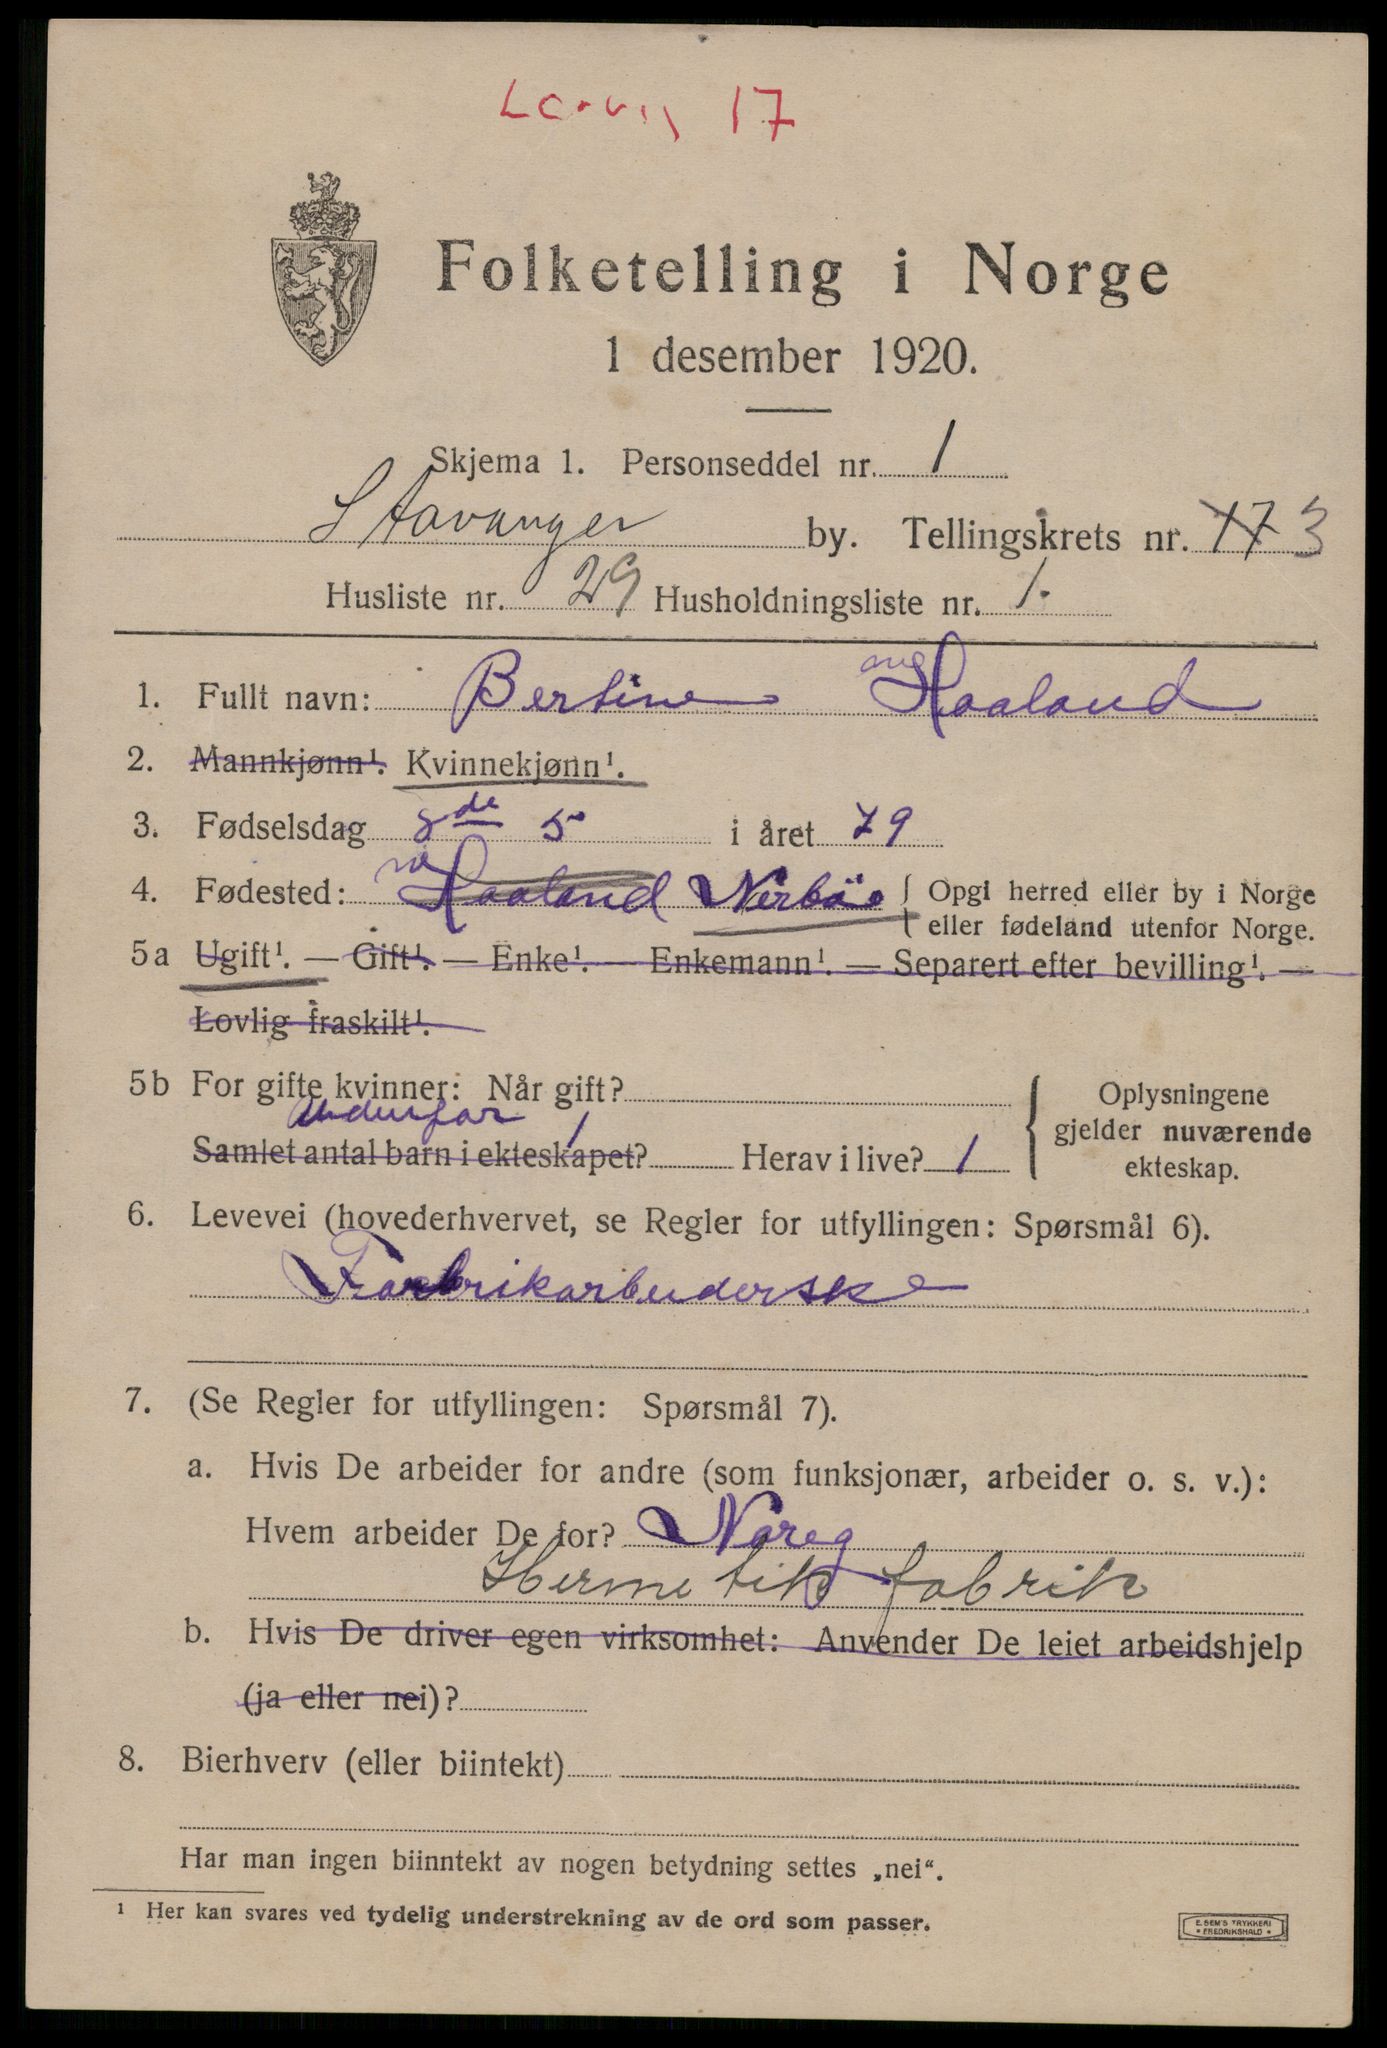 17
Folketelling i Norge
1 desember 1920.
Skjema 1. Personseddel nr. 1
Stavanger by. Tellingskrets nr. 17 3
Husliste nr. 29 Husholdningsliste nr. 1.
1. Fullt navn: Bertine Haaland
2. Mannkjønn¹. Kvinnekjønn¹.
3. Fødselsdag 8de 5 i året 79
4. Fødested: Haaland Nerbö { Opgi herred eller by i Norge
eller fødeland utenfor Norge.
5a Ugift¹. — Gift¹. — Enke¹. — Enkemann¹. — Separert efter bevilling¹. —
Lovlig fraskilt¹.
5b For gifte kvinner: Når gift?
Samlet antal barn i ekteskapet? 1 Herav i live? 1
Oplysningene
gjelder nuværende
ekteskap.
6. Levevei (hovederhvervet, se Regler for utfyllingen: Spørsmål 6).
Fabrikarbuderske
7. (Se Regler for utfyllingen: Spørsmål 7).
a. Hvis De arbeider for andre (som funksjonær, arbeider o. s. v.):
Hvem arbeider De for? Noreg
Hermetik fabrik
b. Hvis De driver egen virksomhet: Anvender De leiet arbeidshjelp
(ja eller nei)?
8. Bierhverv (eller biintekt)
Har man ingen biinntekt av nogen betydning settes „nei“.
¹ Her kan svares ved tydelig understrekning av de ord som passer.
E. SEM'S TRYKKERI
* FREDRIKSHALD *